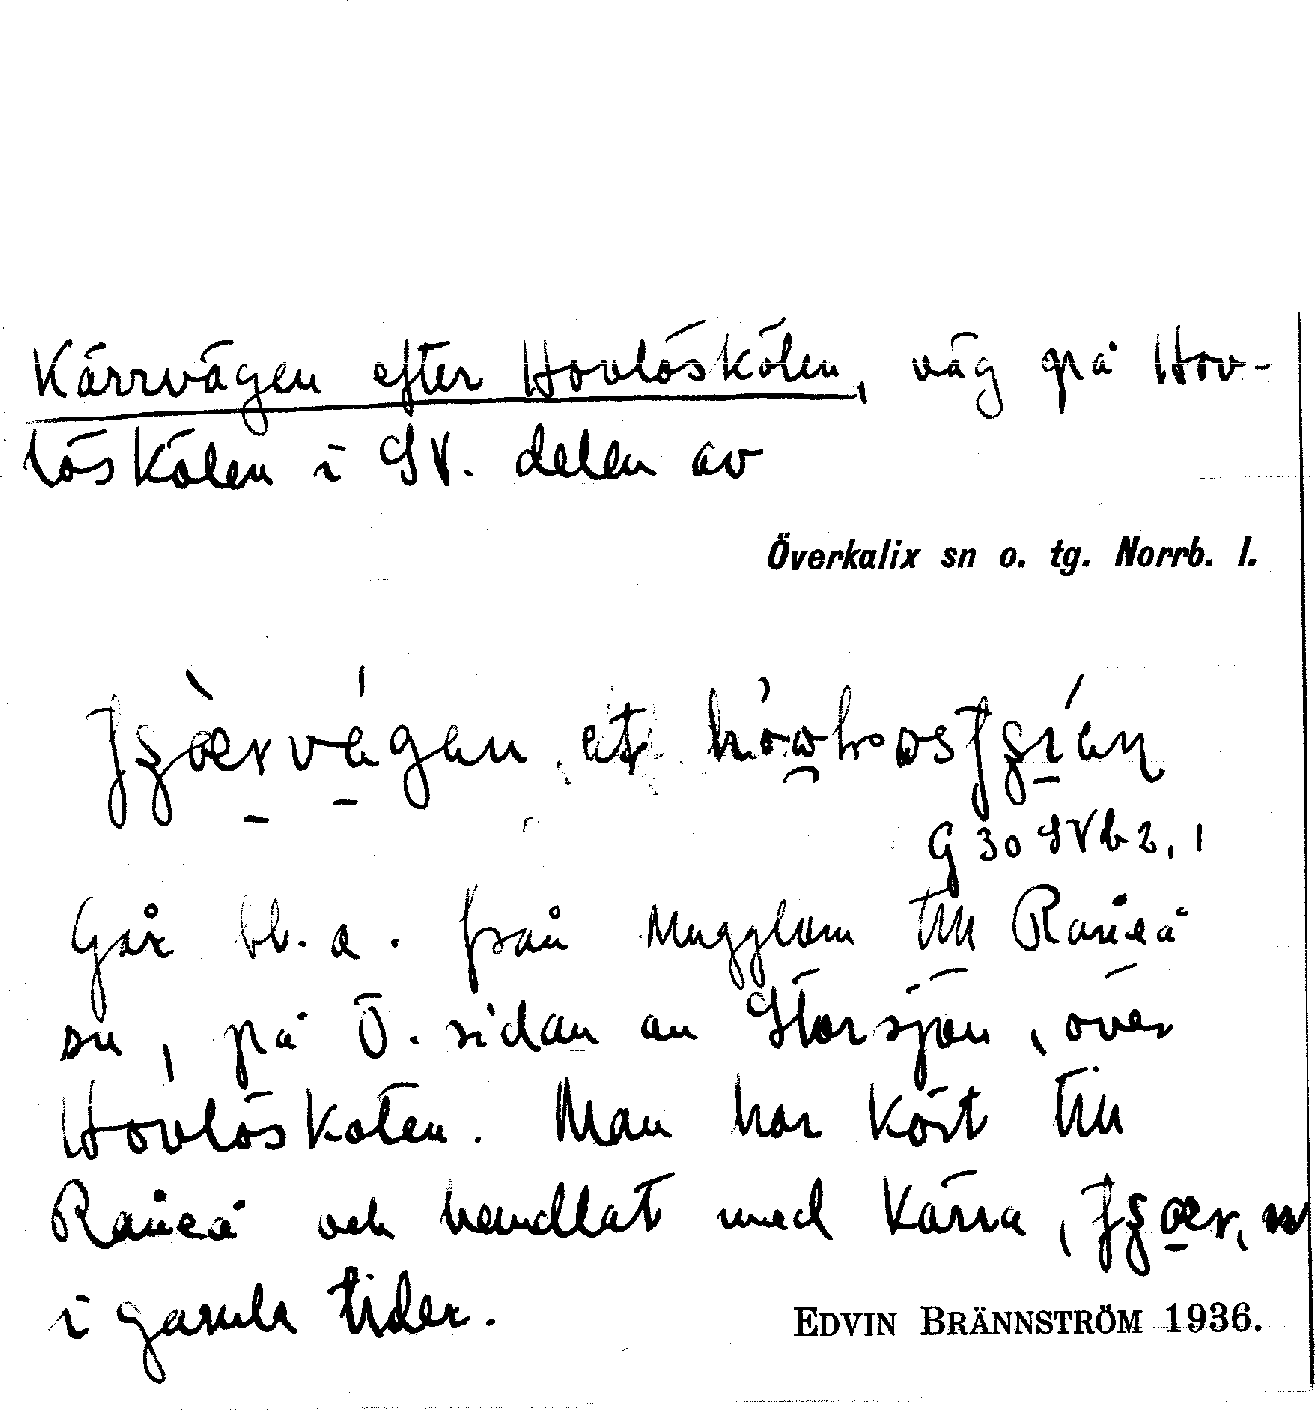 Kärrvägen efter Hovlöskölen, väg på Hov-
löskölen i SV. delen av
Överkalix sn o. tg. Norrb. l.
G 30 SV b 2, 1
Går bl. a. från Mugglam till Råneå
sn, på Ö. sidan an Storsjön, över
Hovlöskölen. Man har kört till
Råneå och handlat med kärra,
i gamla tider.
EDVIN BRÄNNSTRÖM 1936.